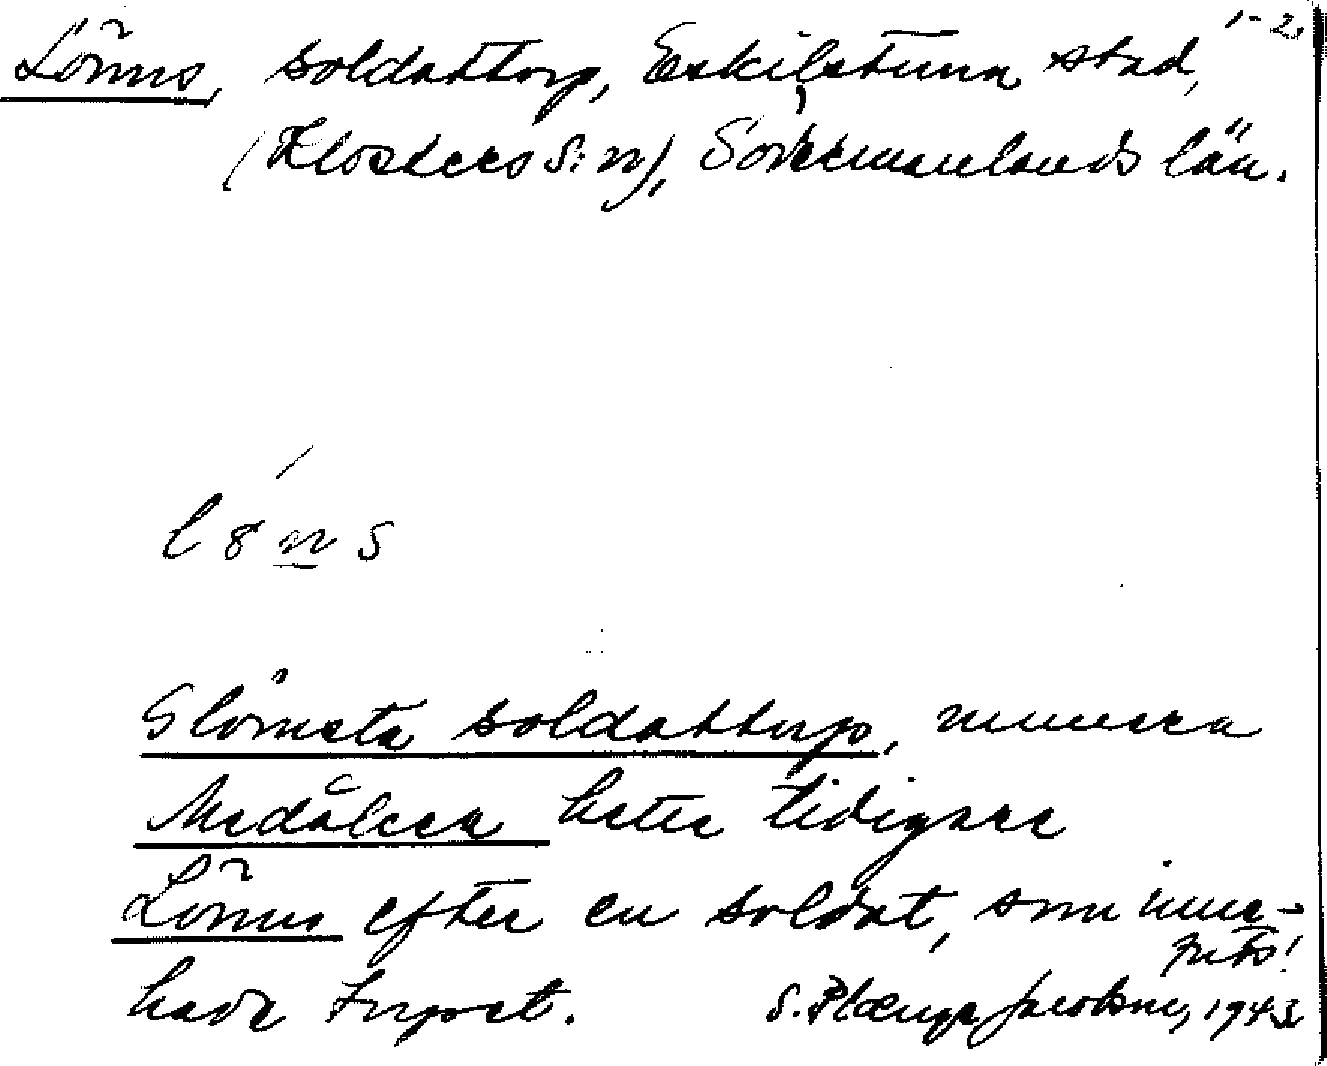 1-2.
Lönns, soldattorp, Eskilstuna stad,
(Klosters S:n), Södermanlands län.
l8ns
Slömsta soldattorp, numera
Medåkra heter tidigare
Lönns efter en soldat, som inne-
hade torpet. S. Plœnge Jacobson, 1943